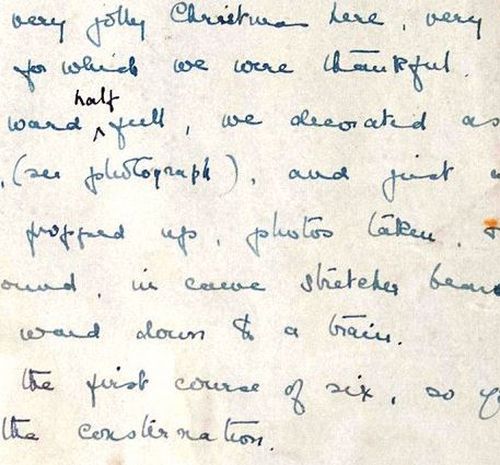 very jolly Christmas here, very
for which we were thankful.
half
ward ^ full, we decorated as
(see photograph), and just
propped up, photos taken,
ound, in came stretcher bear
ward down to a train.
the first course of six, so
the consternation.